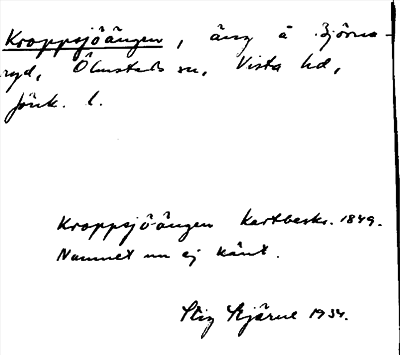 Kroppsjöängen, äng å Björna-
ryd, Ölmstads sn, Vista hd,
Jönk. l.
Kroppsjöängen kartbeskr. 1849.
Namnet nu ej känt.
Stig Stjärne 1934.